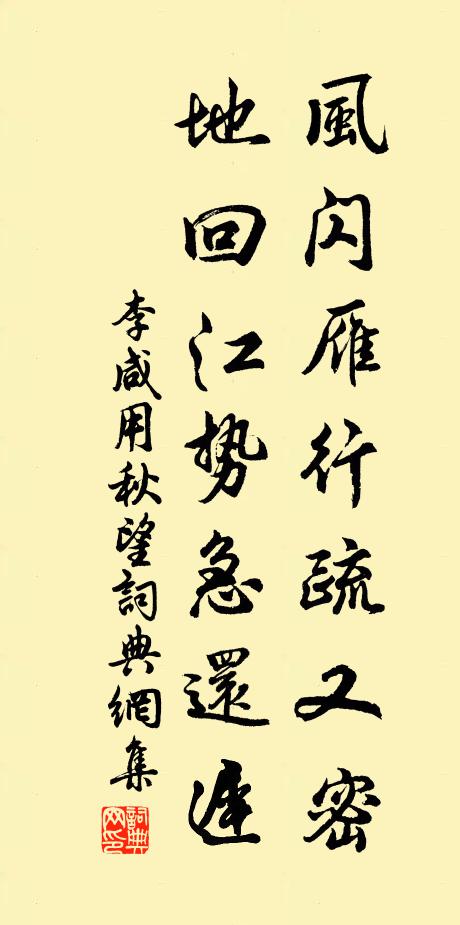 風閃雁行疏又密
地回江勢急還遲
李咸用秋望詞典網集
詞典
网印